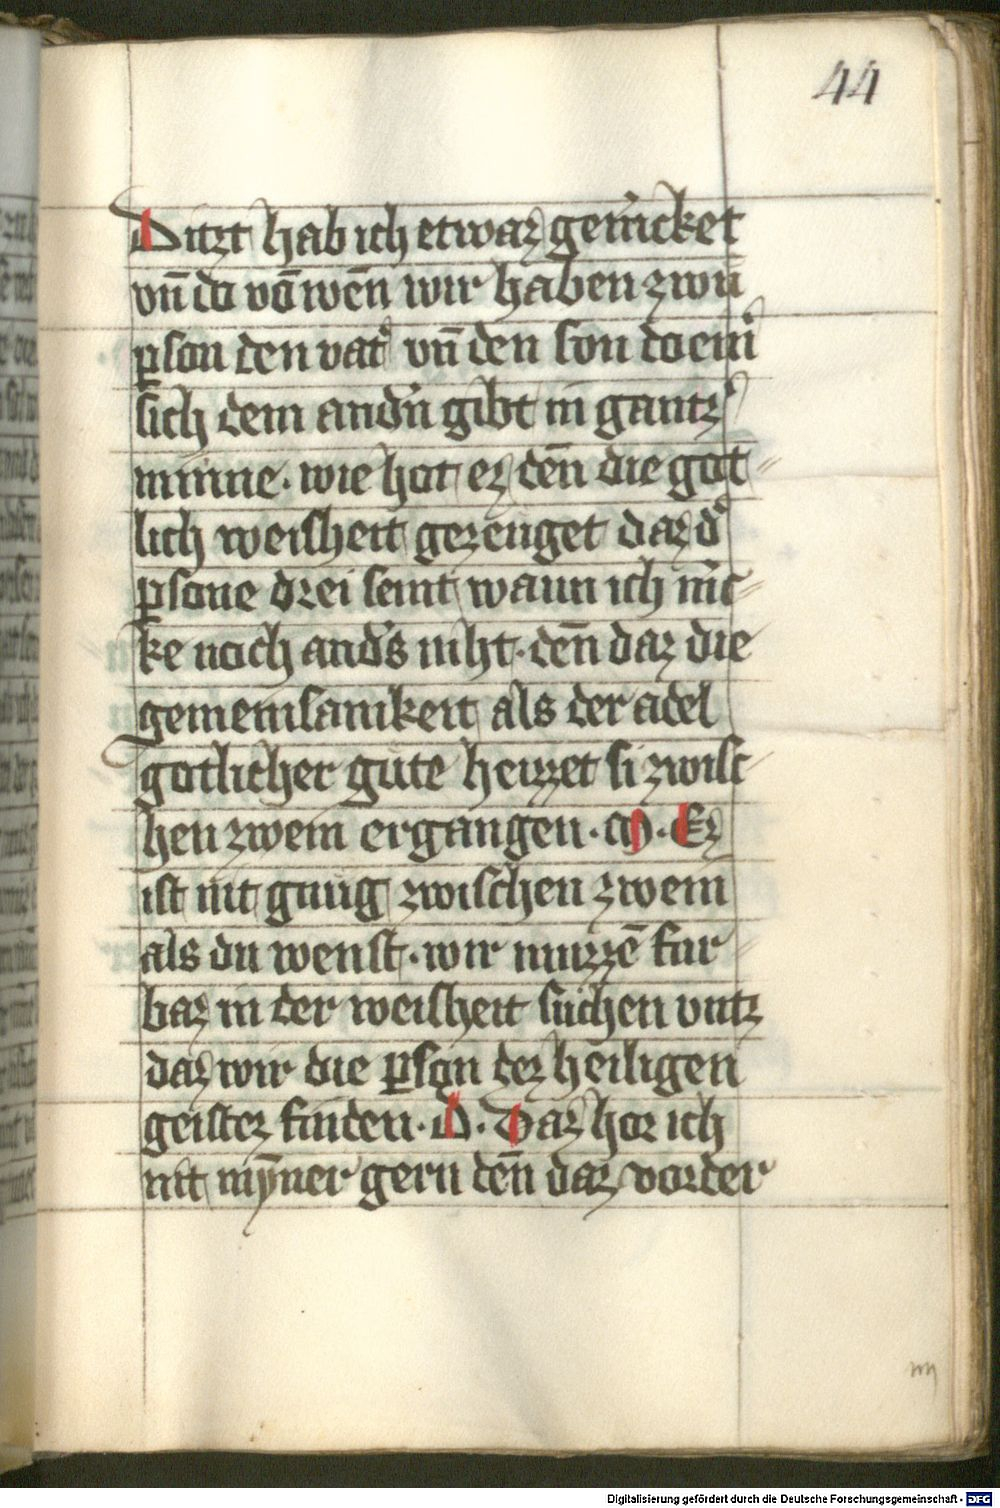 44
Ditzt hab ich etwaz gem̕cket
vn̄ do vō wēn wir haben zwū
ꝑson den vat̕ vn̄ den son do ein̕
sich dem and̕n gibt in gantz̕
minne · wie hat ez dēn die got
lich weisheit gezeuget daz d̕
ꝑsone drei seint wann ich m̕c
ke noch and̕s niht · dēn daz die
gemeinsamkeit als der adel
gotlicher gůte heizzet si zwisc
hen zwein ergangen · M · Ez
ist nit gnug zwischen zwein
als du wenst · wir muzzē fur
baz in der weisheit suchen vntz
daz wir die ꝑson dez heiligen
geistez finden · D · Daz hor ich
nit mȳner gern dēn daz vorder
Digitalisierung gefördert durch die Deutsche Forschungsgemeinschaft - DFG